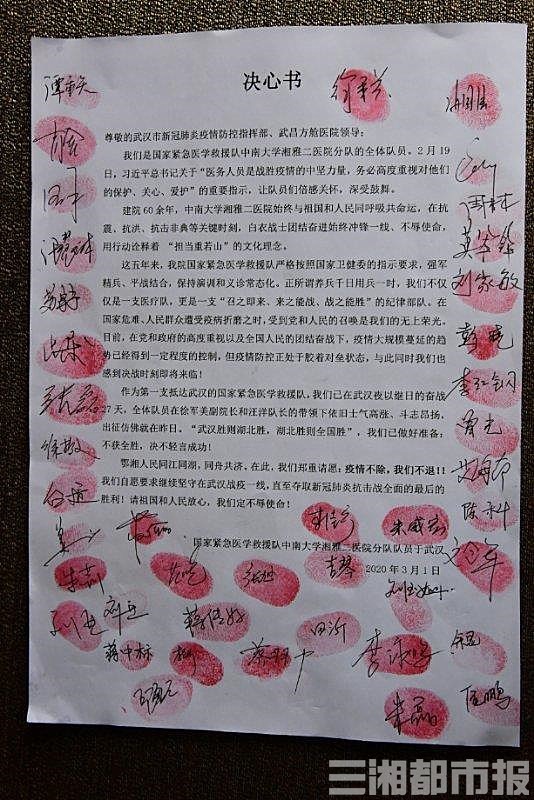 决心书
尊敬的武汉市新冠肺炎疫情防控指挥部、武昌方舱医院领导：
我们是国家紧急医学救援队中南大学湘雅二医院分队的全体队员。2月19
日，习近平总书记关于“医务人员是战胜疫情的中坚力量，务必高度重视对他们
的保护、关心、爱护”的重要指示，让队员们倍感关怀，深受鼓舞。
建院60余年，中南大学湘雅二医院始终与祖国和人民同呼吸共命运，在抗
震、抗洪、抗击非典等关键时刻，白衣战士团结奋进始终冲锋一线、不辱使命，
用行动诠释着“担当重若山”的文化理念。
这五年来，我院国家紧急医学救援队严格按照国家卫健委的指示要求，强军
精兵、平战结合，保持演训和义诊常态化。正所谓养兵千日用兵一时，我们不仅
仅是一支医疗队，更是一支“召之即来、来之能战、战之能胜”的纪律部队。在
国家危难、人民群众遭受疫病折磨之时，受到党和人民的召唤是我们的无上荣光。
目前，在党和政府的高度重视以及全国人民的团结奋战下，疫情大规模蔓延的趋
势已经得到一定程度的控制，但疫情防控正处于胶着对垒状态，与此同时我们也
感到决战时刻即将来临！
作为第一支抵达武汉的国家紧急医学救援队，我们已在武汉夜以继日的奋战
27天，全体队员在徐军美副院长和汪洋队长的带领下依旧士气高涨、斗志昂扬，
出征仿佛就在昨日。“武汉胜则湖北胜，湖北胜则全国胜”，我们已做好准备：
不获全胜，决不轻言成功！
鄂湘人民同江同湖，同舟共济，在此，我们郑重请愿：疫情不除，我们不退！！
我们自愿要求继续坚守在武汉战疫一线，直至夺取新冠肺炎抗击战全面的最后的
胜利！请祖国和人民放心，我们定不辱使命！
国家紧急医学救援队中南大学湘雅二医院分队队员于武汉
2020年3月1日
刘家敏
李红钢
曾光
陈永生
朱莉
朱威宏
古琴
刘进
蒋中标
田沂
李泳
伍鹏
朱磊
三湘都市报